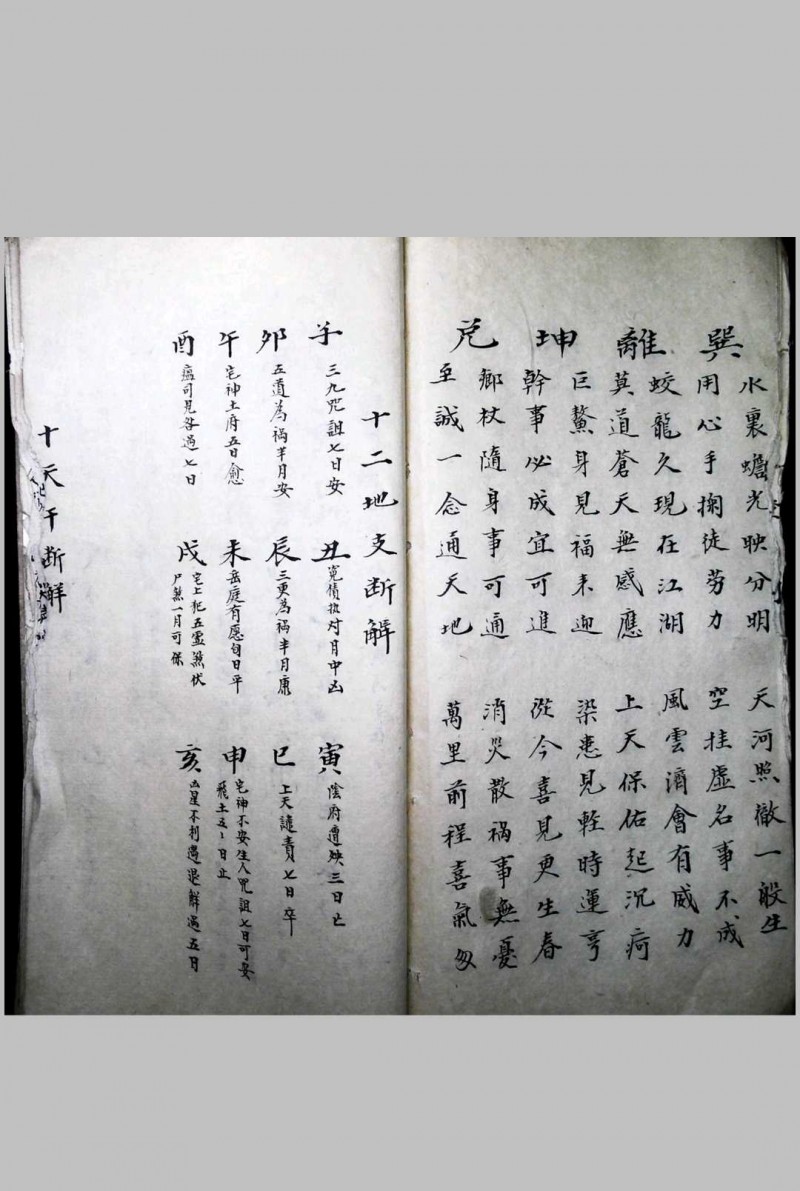 水裏蟾光映分明 天河照徹一般生
巽
用心手掬徒劳力 空挂虚名事不成
蛟龍久現在江湖 風雲濟會有威力
離
莫道蒼天無感應 上天保佑起沉疴
巨鰲身見福来迎 染患見輊時運亨
坤
幹事必成宜可進 從今喜見更生春
鄉杖隨身事可通 消災散禍事無憂
兑
至誠一念通天地 萬里前程喜氣匆
十二地支断解
子 三九咒詛七日安
丑 冤債執对月中凶
寅 陰府遭殃三日亡
卯 五道為禍半月安
辰 三更為禍半月康
巳 上天譴責七日卒
午 宅神土府五日愈
未 岳庭有愿旬日平
申 宅神不安生人咒詛七日可安
飛土五〻日止
酉 瘟司見咎過七日
戌 宅上犯五霊煞伏
尸煞一月可保
亥 凶星不利遇退觧過五日
十天干断解